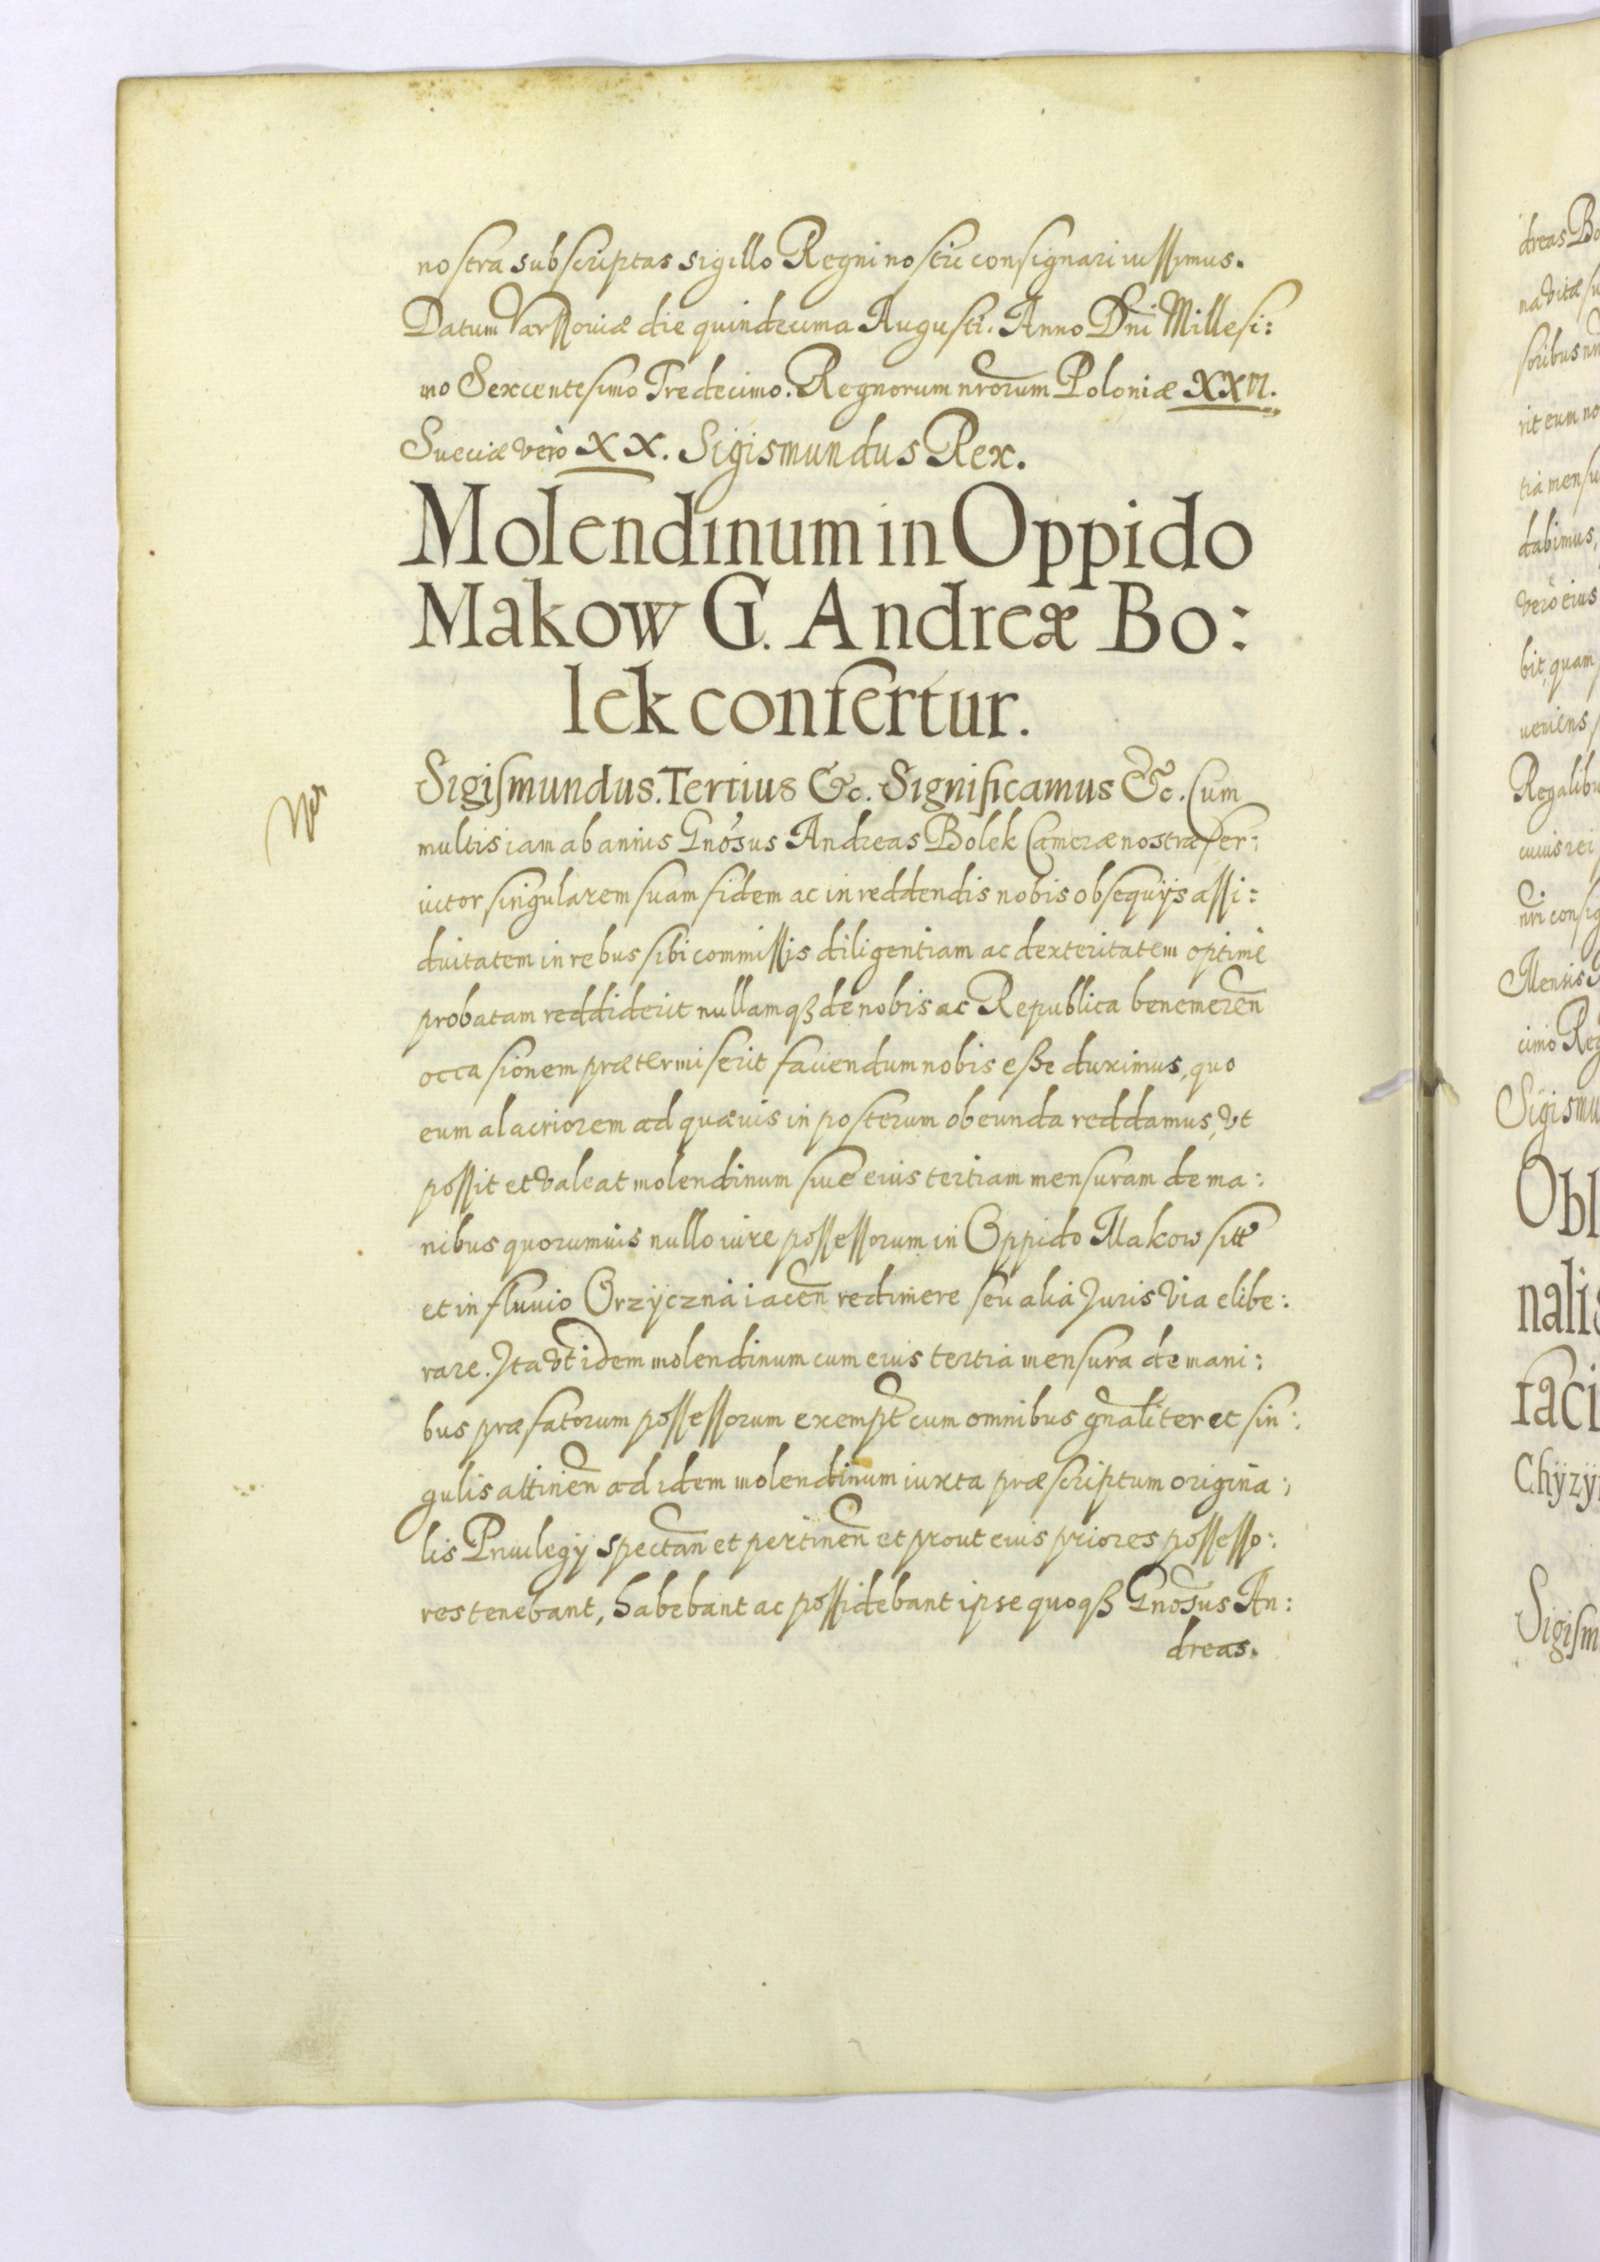 nostra subscriptas sigillo Regni nostri consignari iussimus.
Datum Varssoviæ die quindecima Augusti. Anno Dni Millesi:
mo Sexcentesimo Tredecimo. Regnorum nrorum Poloniæ XXVI.
Sueciæ vero XX. Sigismundus Rex.
Molendinum in Oppido
Makow G. Andreæ Bo:
lek confertur.
Sigismundus. Tertius &c. Significamus &c. Cum
multis iam ab annis Gnosus Andreas Bolek Cameræ nostræ Ser:
uitor singularem suam fidem ac in reddendis nobis obsequijs assi:
duitatem in rebus sibi commissis diligentiam ac dexteritatem optime
probatam reddiderit nullamqȝ de nobis ac Republica benemeren
occasionem prætermiserit fauendum nobis eße duximus, quo
eum alacriorem ad quæuis in posterum obeunda reddamus, vt
possit et valeat molendinum siue eius tertiam mensuram de ma:
nibus quorumuis nullo iure possessorum in Oppido Makow sitt
et in fluuio Orzÿczna iacen redimere seu alia Juris via elibe:
rare. Ita vt idem molendinum cum eius tertia mensura de mani:
bus præfatorum possessorum exempt cum omnibus gnaliter et sin:
gulis attinen ad idem molendinum iuxta præscriptum origina:
lis Priuilegÿ spectan et pertinen et prout eius priores possesso:
res tenebant, habebant ac possidebant ipse quoqȝ Gnosus An:
dreas.
dreas Bo
na vitæ su
soribus
rit eum no
tia mensu
dabimus,
vero eius
bit, quam
ueniens
Regalibu
cuius rei
nri consig
Mensis
cimo Reg
Sigismu
Obl
nalis
faci
Chÿzÿ
Sigism